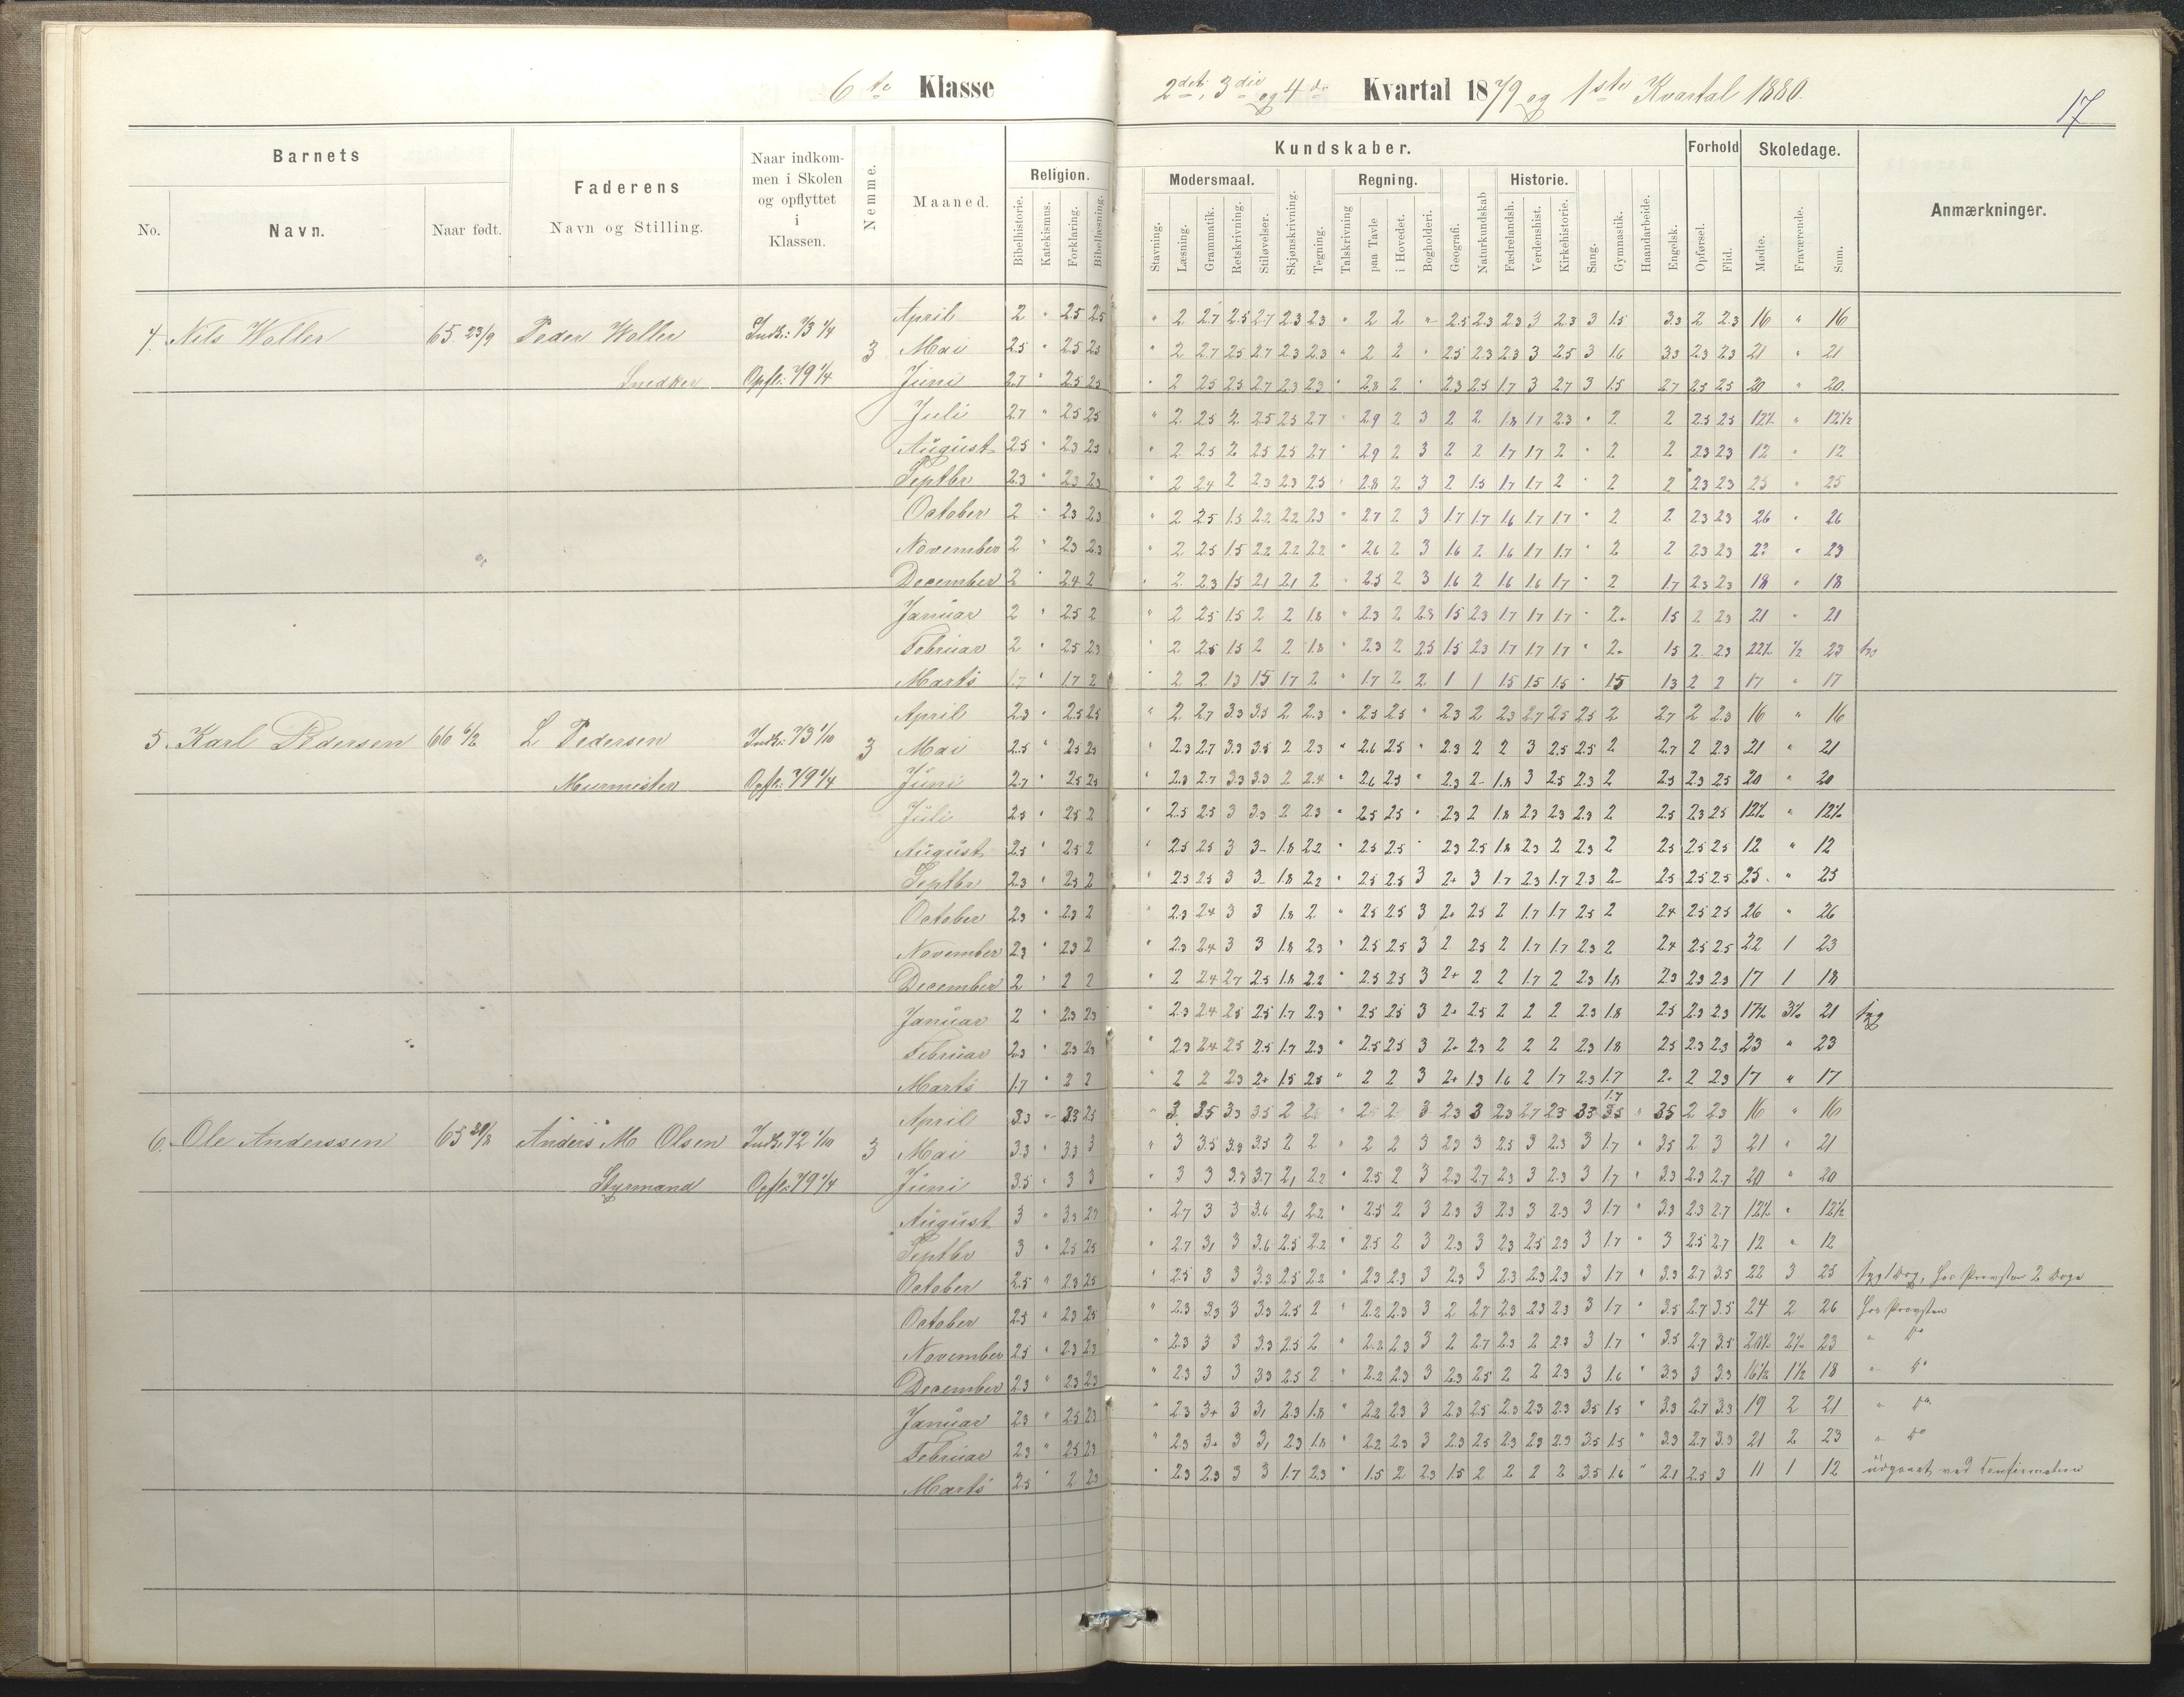 6te Klasse
2det, 3die og 4de Kvartal 1879 og 1ste Kvartal 1880.
17
Barnets
No.
Navn.
Naar født.
Faderens
Navn og Stilling.
Naar indkom-
men i Skolen
og opflyttet
i
Klassen.
Nemme.
Maaned.
Religion.
Bibelhistorie.
Katekismus.
Forklaring.
Bibellæsning.
Kundskaber.
Modersmaal.
Stavning.
Læsning.
Grammatik.
Retskrivning.
Stiløvelser.
Skjønskrivning.
Tegning.
Regning.
Talskrivning
paa Tavle
i Hovedet.
Bogholderi.
Geografi.
Naturkundskab
Historie.
Fædrelandsh.
Verdenshist.
Kirkehistorie.
Sang.
Gymnastik.
Haandarbeide.
Engelsk.
Forhold
Opførsel.
Flid.
Skoledage.
Mødte.
Fraværende.
Sum.
Anmærkninger.
4. Nils Woller 65 23/9 Peder Woller Indk: 73 1/4 3
Snedker Opfl: 79 1/4
April 2 " 2.5 2.5 " 2 2.7 2.5 2.7 2.3 2.3 " 2 2 " 2.5 2.3 2.3 3 2.3 3 1.5 3.3 2 2.3 16 " 16
Mai 2.5 " 2.5 2.5 " 2 2.7 2.5 2.7 2.3 2.3 " 2 2 " 2.5 2.3 2.3 3 2.5 3 1.6 3.3 2.3 2.3 21 " 21
Juni 2.7 " 2.5 2.5 " 2 2.5 2.5 2.7 2.3 2.3 " 2.8 2 " 2.3 2.5 1.7 3 2.7 3 1.5 2.7 2.5 2.5 20 " 20
Juli 2.7 " 2.5 2.5 " 2 2.5 2 2.5 2.5 2.7 " 2.9 2 3 2 2 1.8 1.7 2.3 " 2 2 2.5 2.5 12½ " 12½
August 2.5 " 2.3 2.5 " 2 2.5 2 2.5 2.5 2.7 " 2.9 2 3 2 2 1.7 1.7 2 " 2 2 2.3 2.3 12 " 12
Septbr 2.3 " 2.3 2.3 " 2 2.4 2 2.3 2.3 2.5 " 2.8 2 3 2 1.5 1.7 1.7 2 " 2 2 2.3 2.3 25 " 25
October 2 " 2.3 2.3 " 2 2.5 1.5 2.2 2.2 2.3 " 2.7 2 3 1.7 1.7 1.6 1.7 1.7 " 2 2 2.3 2.3 26 " 26
November 2 " 2.3 2.3 " 2 2.5 1.5 2.2 2.2 2.2 " 2.6 2 3 1.6 2 1.6 1.7 1.7 " 2 2 2.3 2.3 23 " 23
December 2 " 2.4 2 " 2 2.3 1.5 2.1 2.1 2 " 2.5 2 3 1.6 2 1.6 1.6 1.7 " 2 1.7 2.3 2.3 18 " 18
Januar 2 " 2.5 2 " 2 2.5 1.5 2 2 1.8 " 2.3 2 2.8 1.5 2.3 1.7 1.7 1.7 " 2+ 1.5 2 2.3 21 " 21
Februar 2 " 2.5 2.3 " 2 2.5 1.5 2 2 1.8 " 2.3 2 2.5 1.5 2.3 1.7 1.7 1.7 " 2+ 1.5 2 2.3 22½ ½ 23
Marts 1.7 " 1.7 2 " 2 2 1.3 1.5 1.7 2 " 1.7 2 2 1 1 1.5 1.5 1.5 " 1.5 1.3 2 2 17 " 17
5. Karl Pedersen 66 6/2 L. Pedersen Indk: 73 1/10 3
Murmester Opfl: 79 1/4
April 2.3 " 2.5 2.5 " 2 2.7 3.3 3.5 2 2.3 " 2.5 2.5 " 2.3 2 2.3 2.7 2.5 2.5 2 2.7 2 2.3 16 " 16
Mai 2.5 " 2.5 2.5 " 2.3 2.7 3.3 3.5 2 2.3 " 2.6 2.5 " 2.3 2 2 3 2.5 2.5 2 2.7 2 2.3 21 " 21
Juni 2.7 " 2.5 2.5 " 2.3 2.7 3.3 3.3 2 2.4 " 2.6 2.5 " 2.3 2- 1.8 3 2.5 2.3 2 2.5 2.3 2.5 20 " 20
Juli 2.5 " 2.5 2 " 2.5 2.5 3 3.3 2 2.3 " 2.5 2.5 " 2.3 2 1.8 2.3 2.3 2.3 2 2.5 2.3 2.5 12½ " 12½
August 2.5 " 2.5 2 " 2.5 2.5 3 3- 1.8 2.2 " 2.5 2.5 " 2.3 2.5 1.8 2.3 2 2.3 2 2.5 2.5 2.5 12 " 12
Septbr 2.3 " 2.3 2 " 2.5 2.5 3 3- 1.8 2.2 " 2.5 2.5 3 2+ 3 1.7 2.3 1.7 2.3 2- 2.5 2.5 2.5 25 " 25
October 2.3 " 2.3 2 " 2.3 2.4 3 3 1.8 2 " 2.5 2.5 3 2+ 2.5 2 1.7 1.7 2.5 2 2.4 2.5 2.5 26 " 26
November 2.3 " 2.3 2 " 2.3 2.4 3 3 1.8 2.3 " 2.5 2.5 3 2 2.5 2 1.7 1.7 2.3 2 2.4 2.5 2.5 22 1 23
December 2 " 2 2 " 2 2.4 2.7 2.5 1.8 2.2 " 2.5 2.5 3 2+ 2 2 1.7 2 2.3 1.8 2.3 2.3 2.3 17 1 18
Januar 2 " 2.3 2.3 " 2.3 2.4 2.5 2.5 1.7 2.3 " 2.5 2.5 3 2+ 2.5 2 2 2 2.3 1.8 2.5 2.3 2.3 17½ 3½ 21 syg
Februar 2.3 " 2.3 2.3 " 2.3 2.4 2.5 2.5 1.7 2.3 " 2.5 2.5 3 2+ 2.3 2 2 2 2.3 1.8 2.5 2.3 2.3 23 " 23
Marts 1.7 " 2 2 " 2 2 2.3 2+ 1.5 2.5 " 2 2 3 2+ 1.3 1.6 2 1.7 2.3 1.7 2+ 2 2.3 17 " 17
6. Ole Anderssen 65 Anders M. Olsen Indk: 72 1/10 3
Styrmand Opfl: 79 1/4
April 3.3 " 3.3 2.5 " 3 3.5 3.3 3.5 2 " 2 3 2.3 3 2.3 2.7 2.3 3.5 1.7 " 3.5 2 2.3 16 " 16
Mai 3.3 " 3.3 3 " 3 3.5 3.3 3.5 2 2 " 2 2 3 2.3 3 2.5 3 2.3 3 1.7 " 3.5 2 3 21 " 21
Juni 3.5 " 3 3 " 3 3 3.3 3.7 2.1 2.2 " 2.5 2 3 2.3 2.7 2.3 3 2.3 3 1.7 " 3.3 2.3 2.7 20 " 20
August 3 " 3.3 2.7 " 2.7 3 3 3.6 2.1 2.2 " 2.5 2 3 2.3 3 2.3 3 2.3 3 1.7 " 3.3 2.3 2.7 12½ " 12½
Septbr 3 " 2.5 2.5 " 2.7 3.1 3 3.6 2.5 2.2 " 2.5 2 3 2.3 3 2.3 2.5 2.3 3 1.7 " 3 2.5 2.7 12 " 12
October 2.5 " 2.3 2.5 " 2.5 3 3 3.3 2.5 2.2 " 2.3 2.3 3 2.3 3 2.3 2.3 2.3 3 1.7 " 3.3 2.7 3.5 22 3 25 syg 1 Dag, hos Provsten 2 Dage
October 2.5 " 2.3 2.5 " 2.3 3.3 3 3.3 2.5 2 " 2.2 2.3 3 2 2.7 2.3 2.3 2.3 3 1.7 " 3.5 2.7 3.5 24 2 26 hos Provsten
November 2.5 " 2.3 2.3 " 2.3 3 3 3.3 2.5 2 " 2.2 2.3 3 2 2.7 2.3 2 2.3 3 1.7 " 3.5 2.7 3.5 20½ 2½ 23 " do
December 2.3 " 2.3 2.3 " 2.3 3 3 3.3 2.5 2 " 2.2 2.3 3 2.3 2.5 2 2 2.3 3 1.6 " 3.3 3 3.3 16½ 1½ 18 " do
Januar 2.3 " 2.5 2.3 " 2.3 3+ 3 3.1 2.3 1.8 " 2.2 2.3 3 2.3 2.5 2.3 2.3 2.3 3.5 1.5 " 3.3 2.7 3.3 19 2 21 " do
Februar 2.3 " 2.5 2.3 " 2.3 3+ 3 3.1 2.3 1.8 " 2.2 2.3 3 2.3 2.5 2.3 2.3 2.3 3.5 1.5 " 3.3 2.7 3.3 21 2 23 " do
Marts 2.5 " 2 2.3 " 2.3 2.3 3 3 1.7 2.3 " 1.5 2 2.3 1.5 2 2 2 2 3.5 1.6 " 2.1 2.5 3 11 1 12 udgaaet ved Confirmation